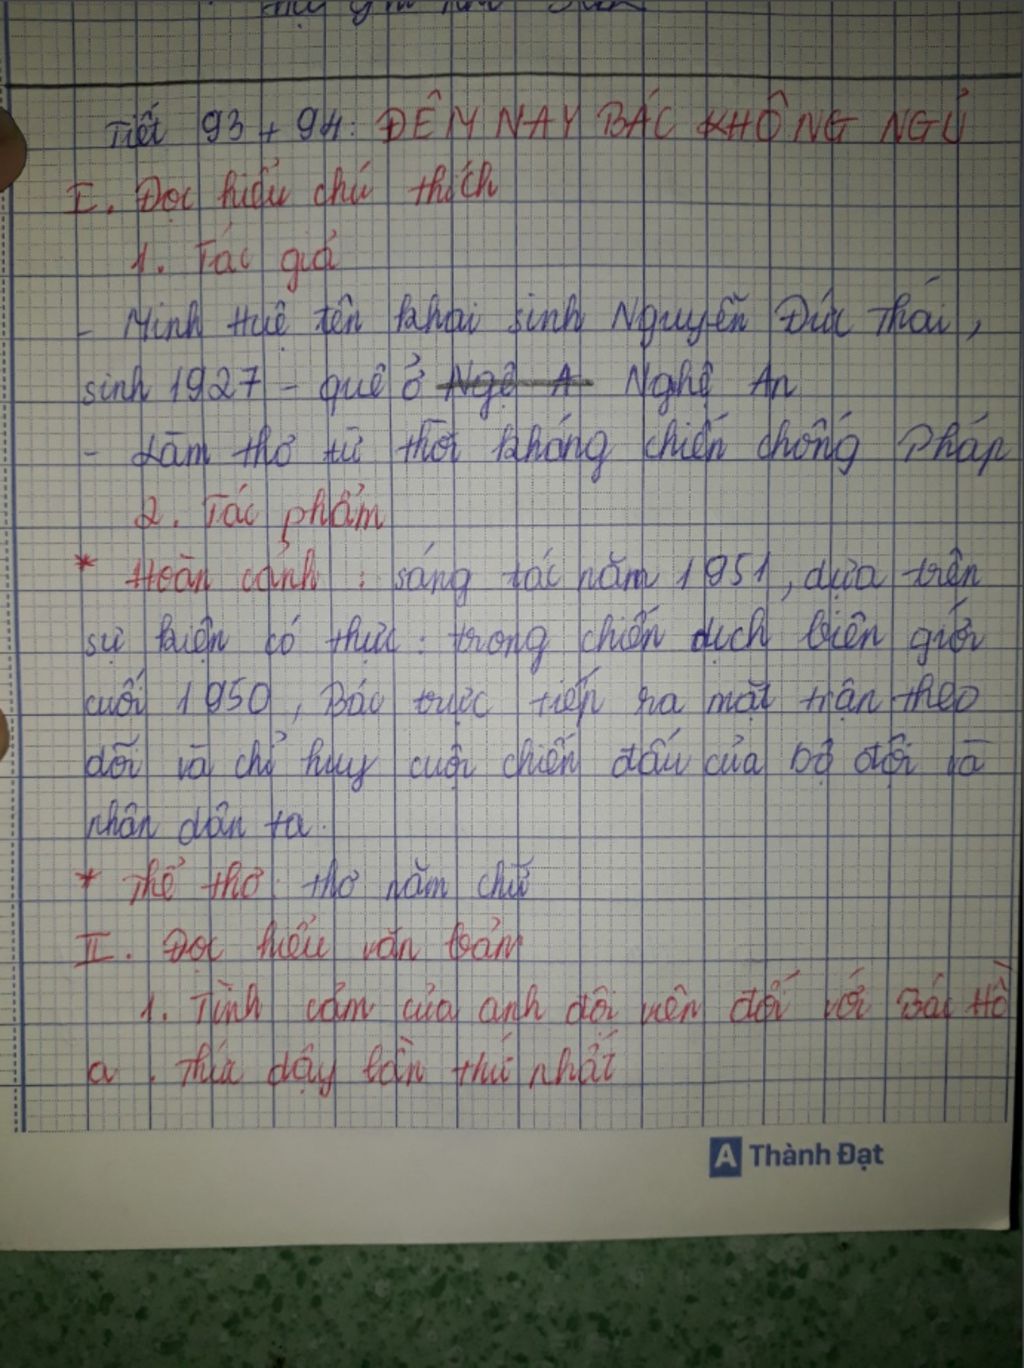 Tiết 93 + 94: ĐÊM NAY BÁC KHÔNG NGỦ
I. Đọc hiểu chú thích
1. Tác giả
- Minh Huệ tên khai sinh Nguyễn Đức Thái,
sinh 1927 - quê ở Nghệ An
- Làm thơ từ thời kháng chiến chống Pháp
2. Tác phẩm
* Hoàn cảnh : sáng tác năm 1951, dựa trên
sự kiện có thực : trong chiến dịch biên giới
cuối 1950, Bác trực tiếp ra mặt trận theo
dõi và chỉ huy cuộc chiến đấu của bộ đội và
nhân dân ta.
* Thể thơ : thơ năm chữ
II. Đọc hiểu văn bản
1. Tình cảm của anh đội viên đối với Bác Hồ
a. Thức dậy lần thứ nhất
A Thành Đạt